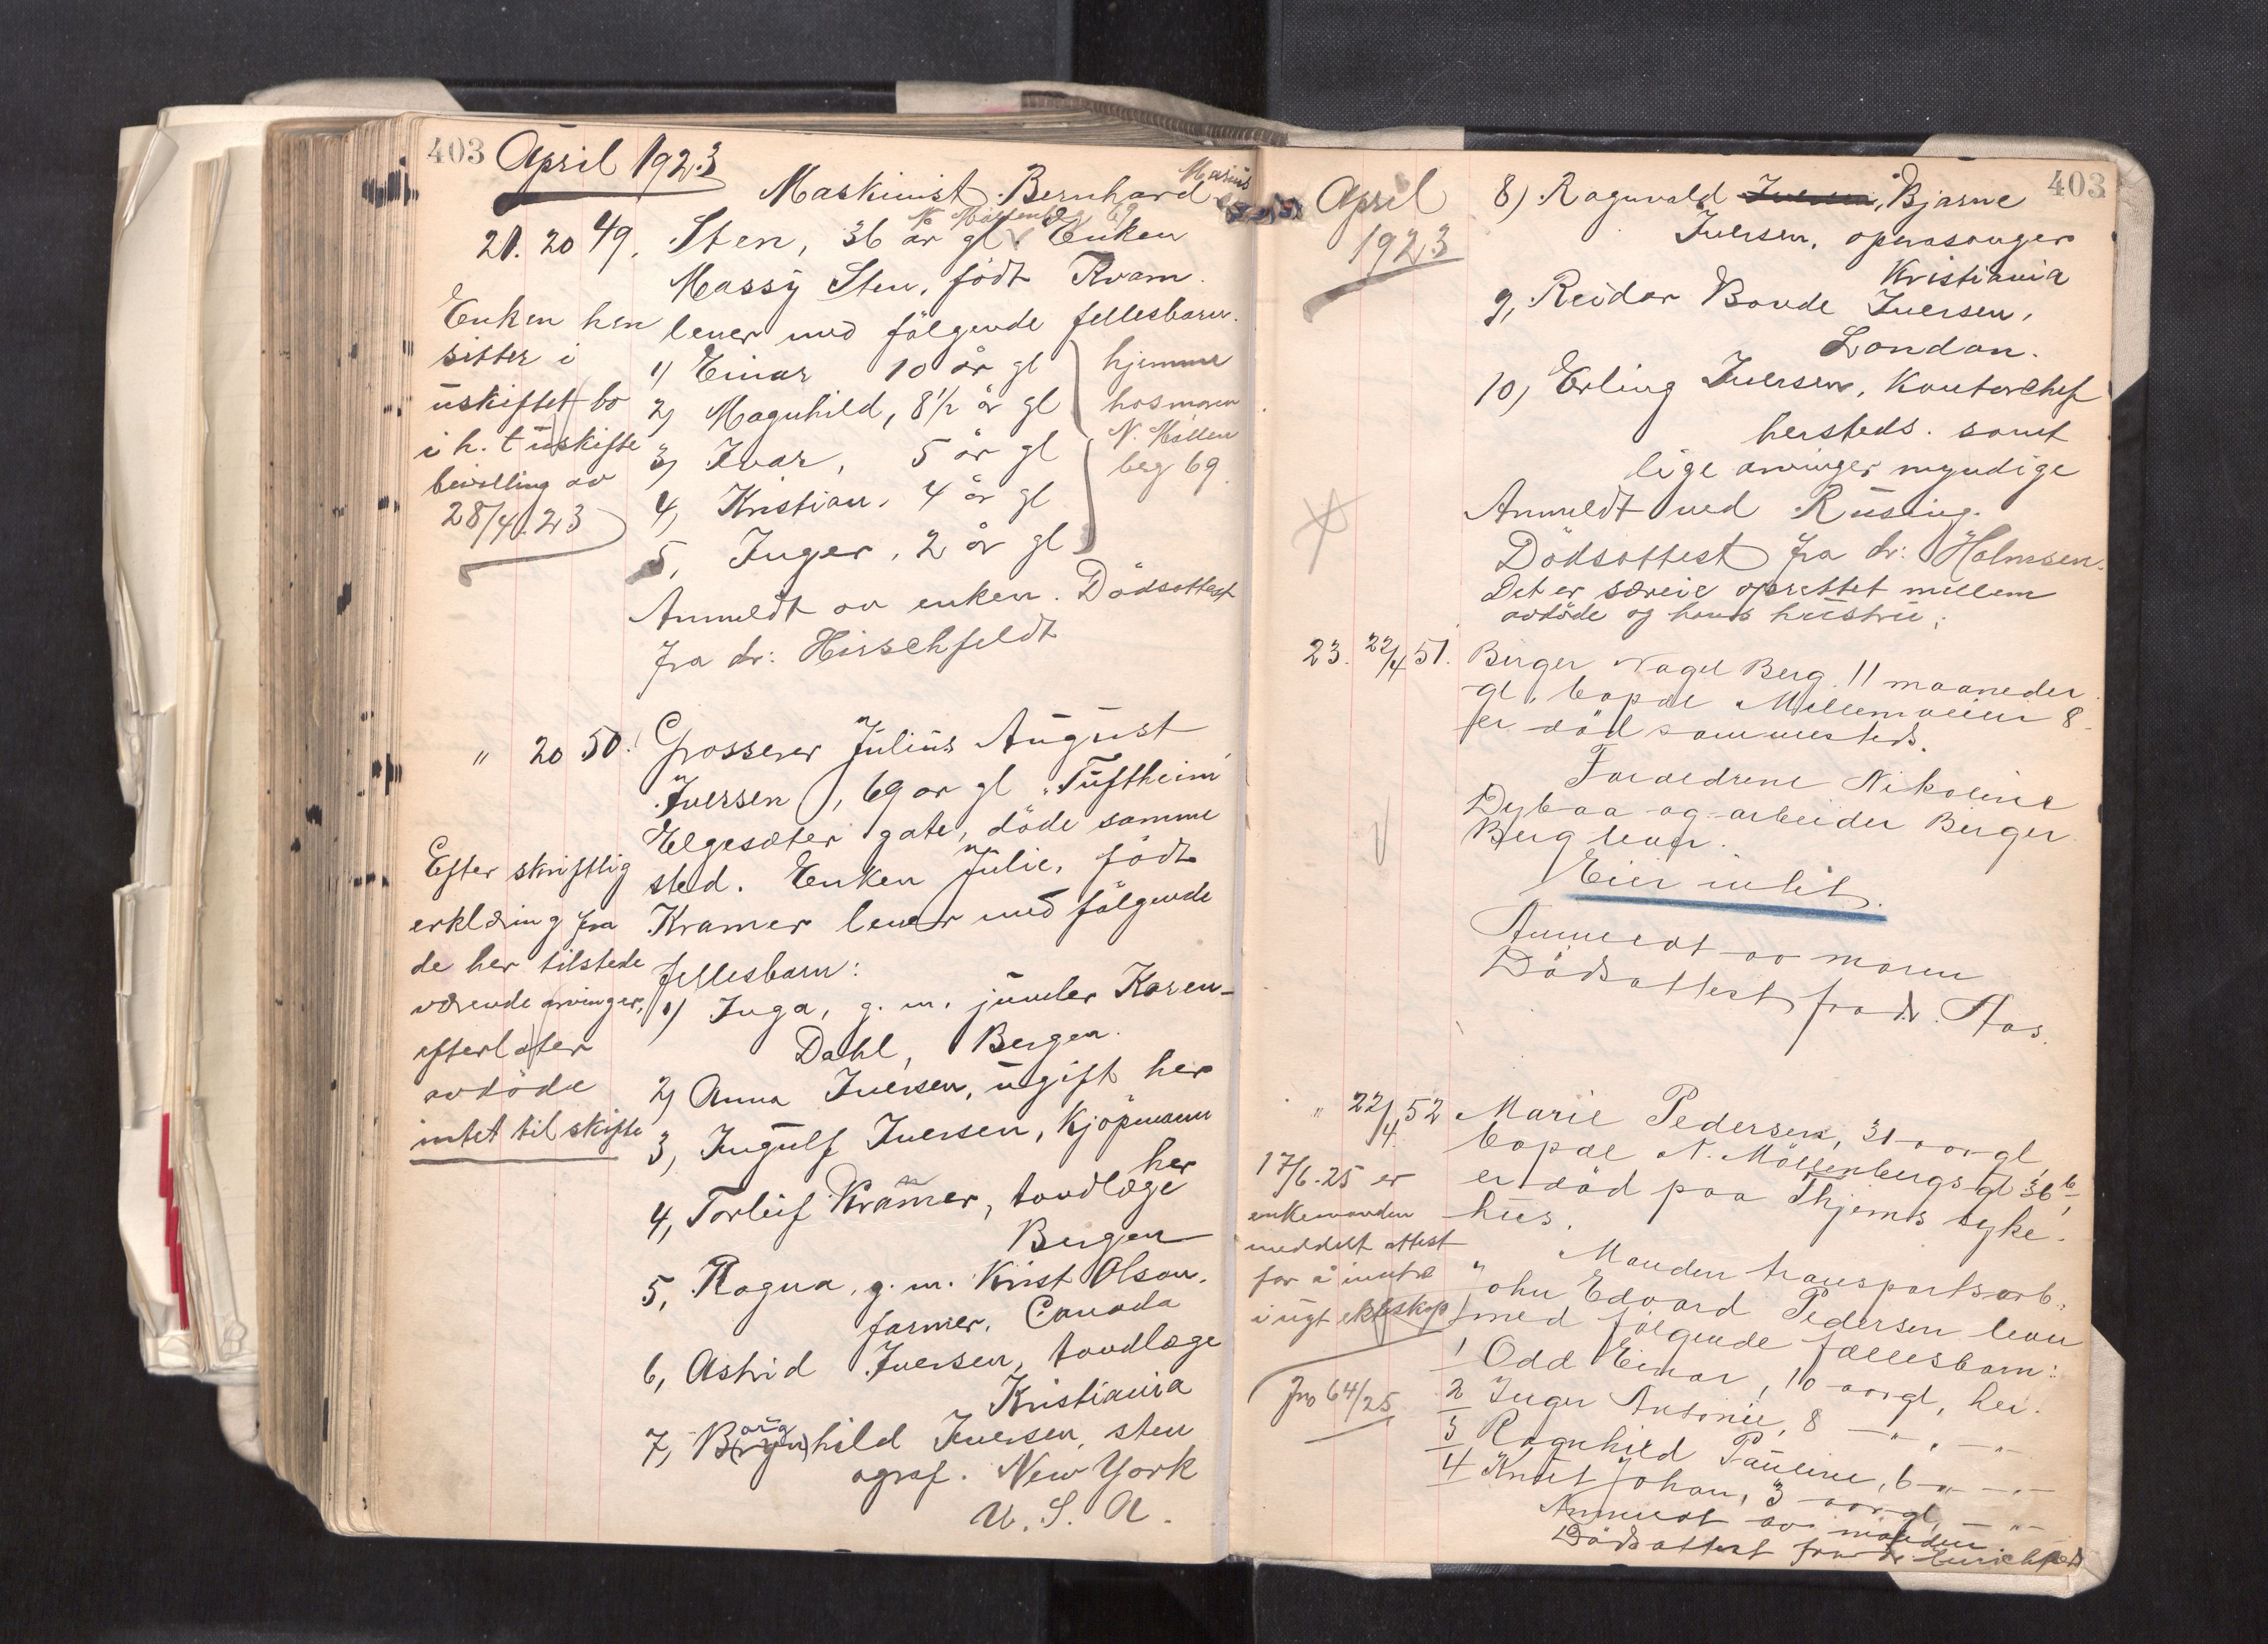 403 April 1923
Maskinist Bernhard Marius
21. 20 49. Sten, 36 år gl. N. Möllenbg 69 Enken
Massy Sten, födt Kvam.
lever med fölgende fellesbarn.
1) Einar 10 år gl
2) Magnhild, 8½ år gl
3) Ivar, 5 år gl
4, Kristian, 4 år gl
5, Inger, 2 år gl
hjemme
hos moren
N. Möllen
berg 69.
Anmeldt av enken. Dödsattest
fra dr: Hirschfeldt
Enken hen
sitter i
uskiftet bo
i h. t uskifte
bevilling av
28/4.23
" 20 50. Grosserer Julius August
Iversen, 69 år gl. "Tuftheim"
Elgesæter gate, döde samme
sted. Enken Julie, födt
Kramer lever med fölgende
fellesbarn:
1) Inga, g. m. juveler Karen-
Dahl, Bergen.
2) Anna Iversen, ugift her
3, Ingulf Iversen, Kjöpmann
her
4, Torleif Kramer, tandlæge
Bergen
5, Ragna, g. m. Krist Olsen.
farmer. Canada
6, Astrid Iversen, tandlæge
Kristiania
7, B(ryn)hild org Iversen, sten
ograf. New York
U. S. A.
Efter skriftlig
erklæring fra
de her tilstede
værende arvinger,
efterlater
avdöde
intet til skifte
April
1923
403
8) Ragnvald Iversen, Bjarne
Iversen, operasanger
Kristiania
9, Reidar Bonde Iversen,
London.
10, Erling Iversen, Kontorchef
hersteds. samt
lige arvinger myndige
Anmeldt ved Rusing.
Dödsattest fra dr: Holmsen.
Det er særeie oprettet mellem
avdöde og hans hustru.
23. 22/4 51. Birger Nagel Berg. 11 maaneder
gl. bopæl Mellemveien 8.
er död sammesteds.
Foraeldrene Nikoline
Dybaa og arbeider Birger
Berg lever.
Eier intet.
Anmeldt av moren
Dödsattest fra dr. Aas.
" 22/4. 52 Marie Pedersen, 31 aar gl
bopæl N. Möllenbergs gt 36 b,
er död paa Thjems syke-
hus.
Manden transportsarb.
John Edvard Pedersen lever
med fölgende fællesbarn:
1 Odd Einar, 10 aar gl, her.
2 Inger Antonie, 8 - " - , - " -
3 Ragnhild Pauline, 6 - " - - " -
4 Knut Johan, 3 aar gl, - " -
Anmeldt av manden
Dödsattest fra dr
17/6.25 er
enkemanden
meddelt attest
for å inntre
i nyt ekteskap
Jno 64/25